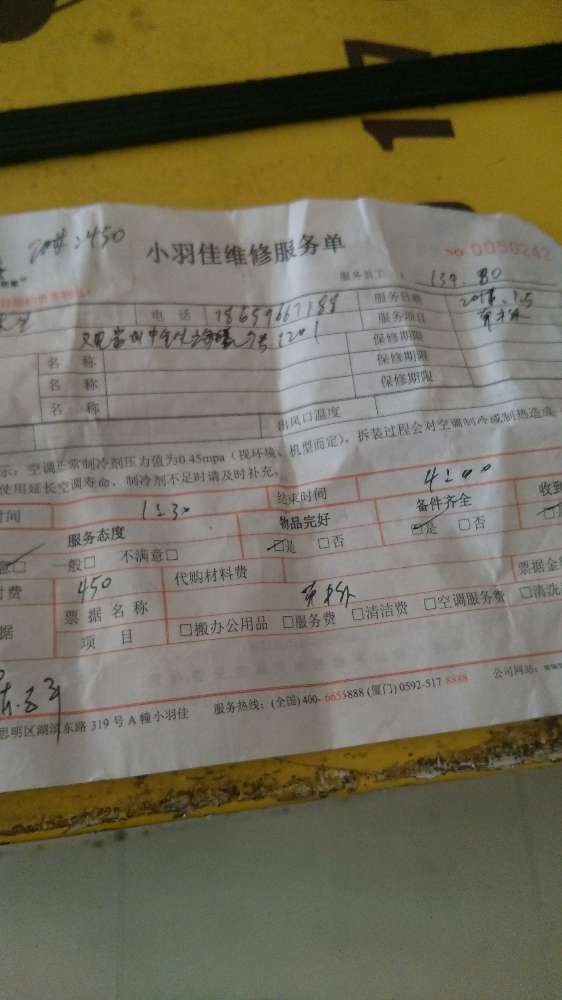 2450
小羽佳维修服务单
NO.0050242
服务员工: 139.80
电话 18659667188 服务日期
服务项目
名称 保修期限
名称 保修期限
名称 保修期限
出风口温度
示：空调正常制冷剂压力值为0.45mpa（视环境、机型而定），拆装过程会对空调制冷或制热造成
使用延长空调寿命，制冷剂不足时请及时补充。
时间 1:30 结束时间 4:00
服务态度 物品完好 备件齐全 收到
意□ 一般□ 不满意□ □是 □否 □是 □否
时费 450 代购材料费 票据金
据 票据名称
项目 □搬办公用品 □服务费 □清洁费 □空调服务费 □清洗
思明区湖滨东路319号A幢小羽佳 服务热线：(全国)400-6653888 (厦门)0592-5178888 公司网站：